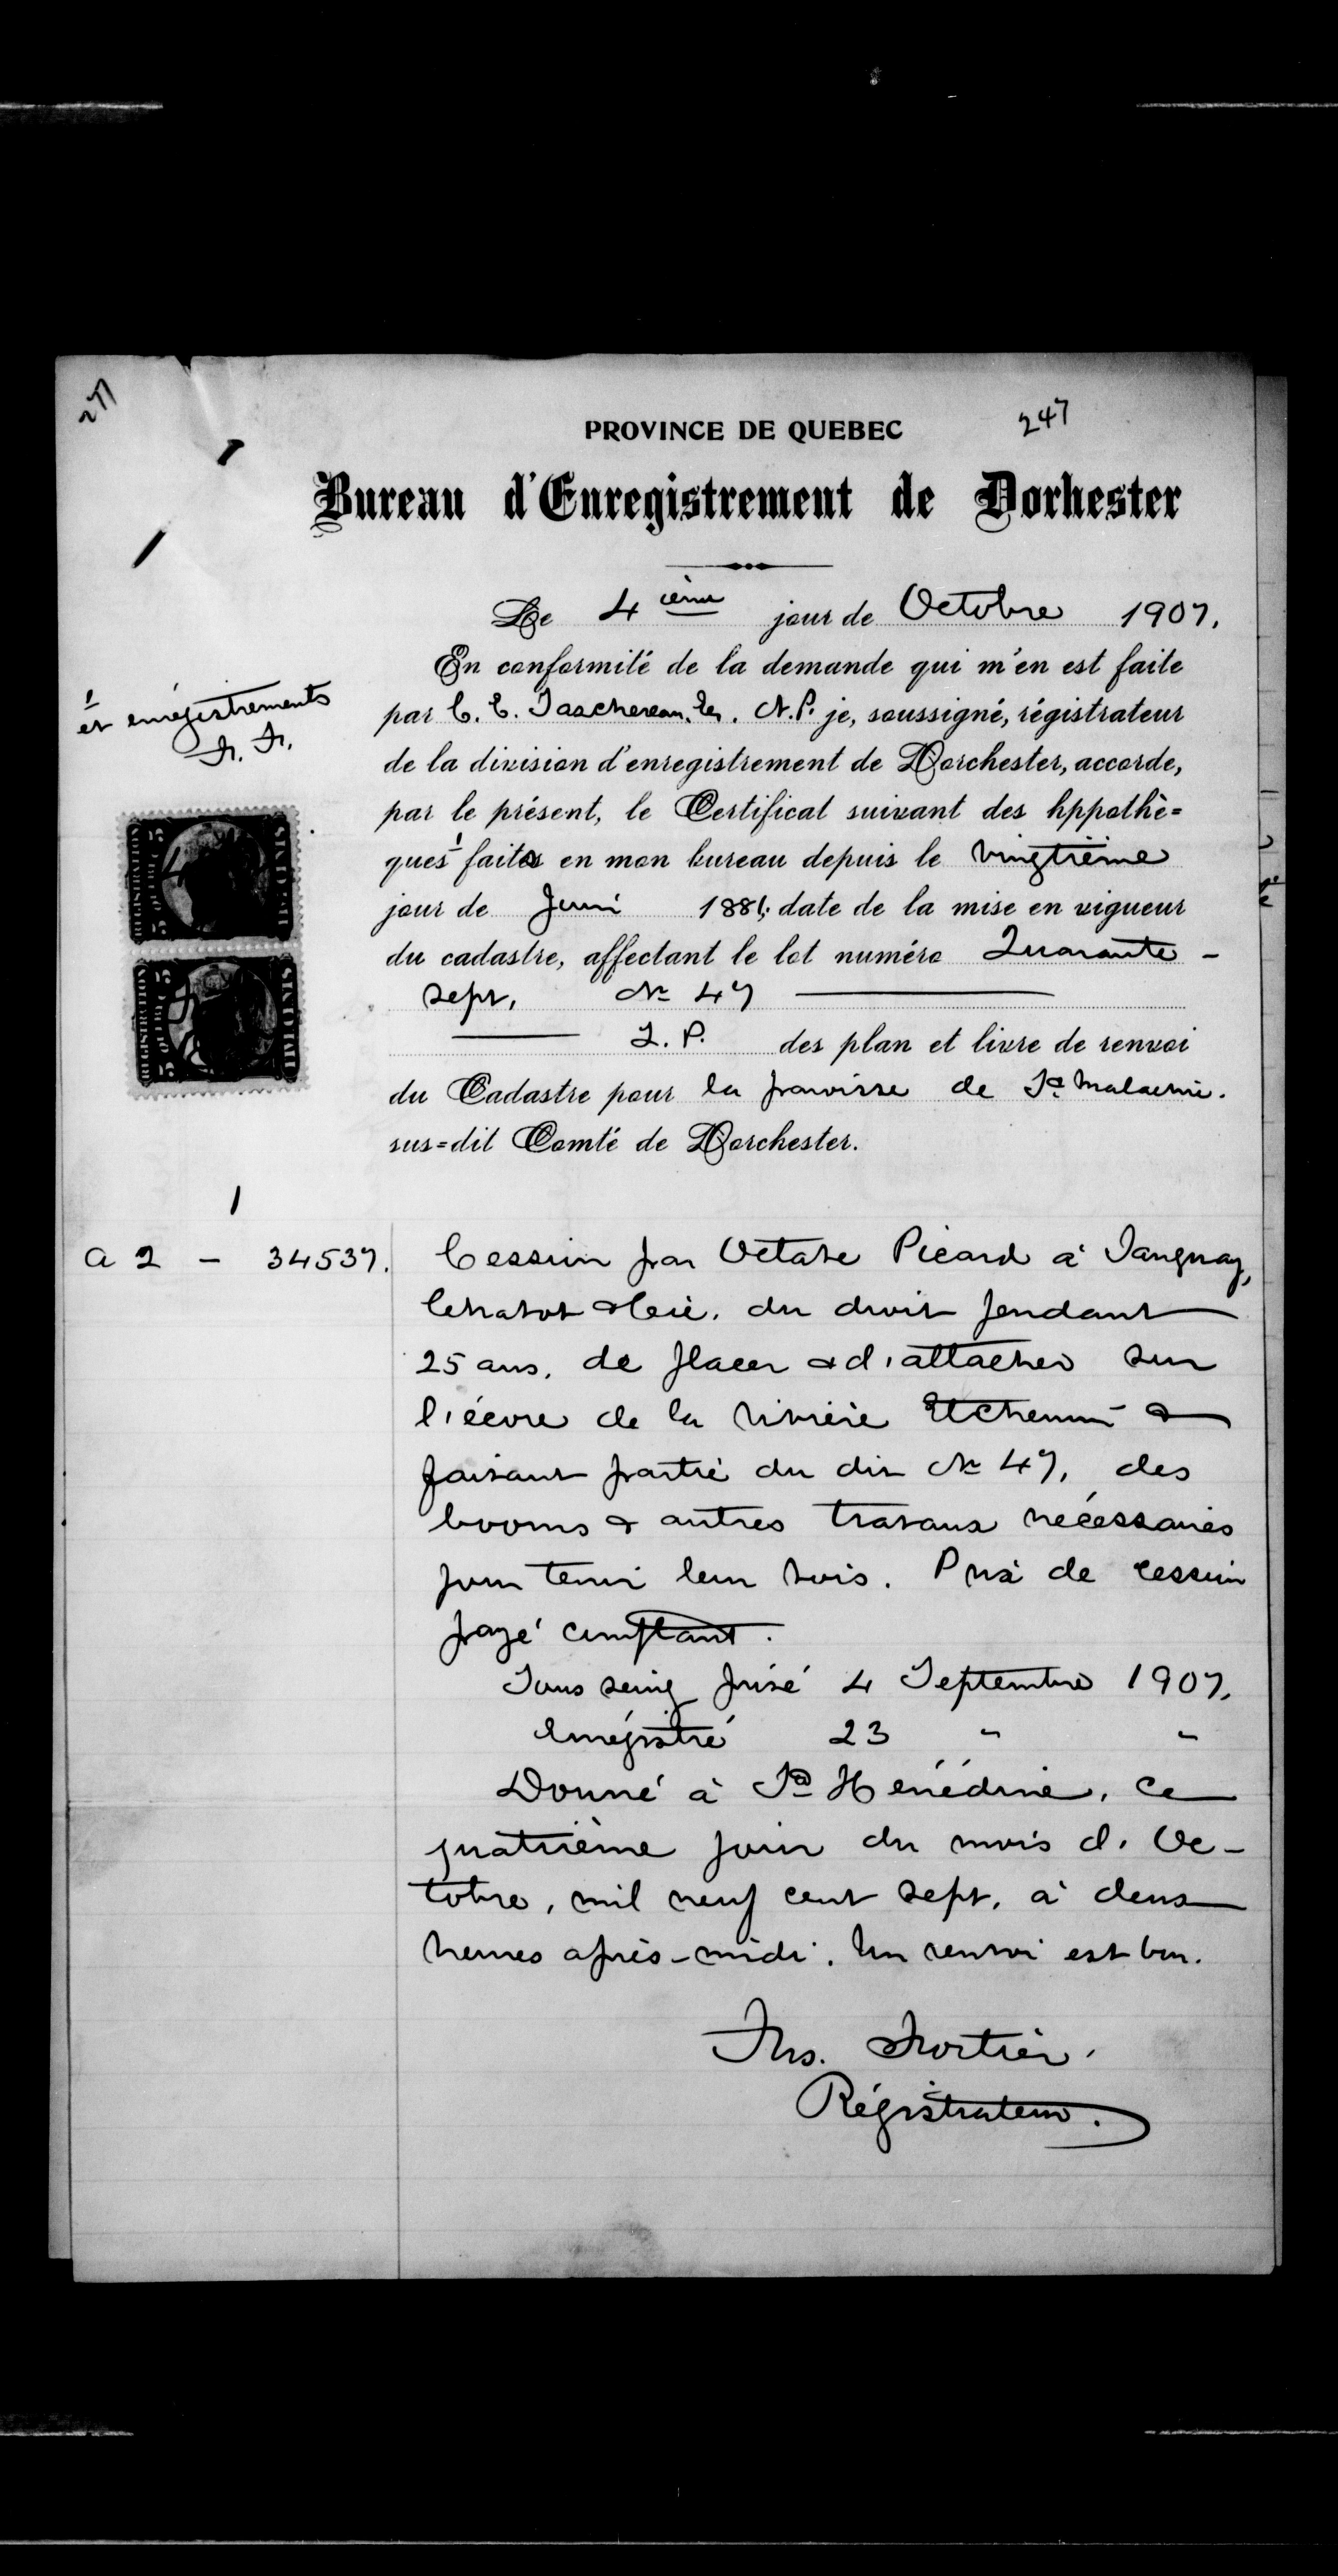 247
PROVINCE DE QUEBEC
Bureau d'Enregistrement de Dorhester
Le 4 ième jour de Octobre 1907.
En conformité de la demande qui m'en est faite
par C. E. Taschereau, Er. N.P. je, soussigné, régistrateur
de la division d'enregistrement de Dorchester, accorde,
par le présent, le Certificat suivant des hppothè=
ques faites en mon bureau depuis le vingtième
jour de Juin 1881, date de la mise en vigueur
du cadastre, affectant le lot numéro Quarante -
sept, No 47
Q. P. des plan et livre de renvoi
du Cadastre pour la paroisse de St Malachie.
sus=dit Comté de Dorchester.
1
et enrégistrements
Fr. Fr.
REGISTRATION
5
REGISTRATION
5
1
A 2 - 34537.
Cession par Octave Picard à Tanguay,
Chabot & Cie, du droit pendant
25 ans, de placer & d'attacher sur
l'écore de la rivière Etchemin &
faisant partie du dit No 47, des
booms & autres travaux nécessaires
pour tenir leur bois. Prix de cession
payé comptant.
Sous seing privé 4 Septembre 1907,
Enrégistré 23 " "
Donné à Ste Hénédine, ce
quatrième jour du mois d'Oc-
tobre, mil neuf cent sept, à deux
heures après-midi. Un renvoi est bon.
Frs. Fortier.
Régistrateur.